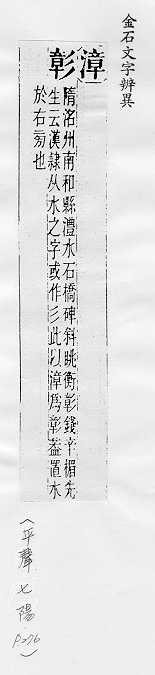 金石文字辨異
漳
彰
隋洛州南和縣澧水石橋碑斜眺衡彰錢辛楣先
生云漢隸从水之字或作彡此以漳為彰葢置水
於右旁也
（平聲 七陽 P.276）